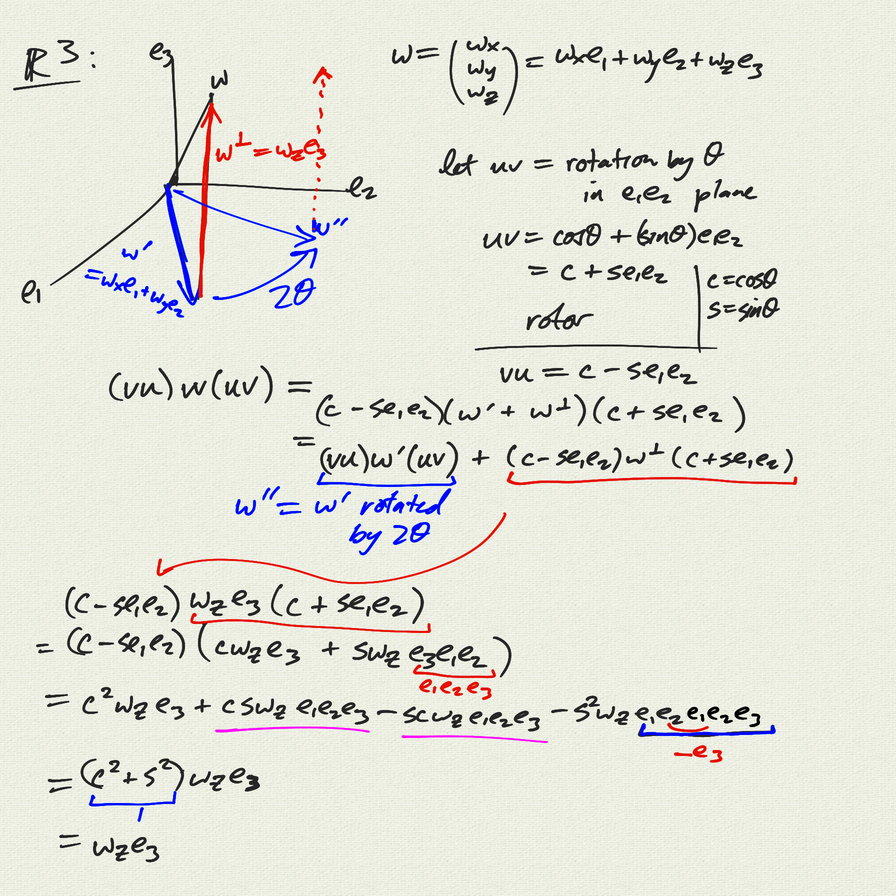 ℝ³:
e₃
w
w^⊥ = w_z e₃
e₂
w''
w'
= w_x e₁ + w_y e₂
e₁
2θ
w = (w_x w_y w_z) = w_x e₁ + w_y e₂ + w_z e₃
let uv = rotation by θ
in e₁e₂ plane
uv = cosθ + (sinθ)e₁e₂
= c + se₁e₂
c = cosθ
s = sinθ
rotor
vu = c - se₁e₂
(vu) w (uv) =
(c - se₁e₂)(w' + w^⊥)(c + se₁e₂)
= (vu)w'(uv) + (c - se₁e₂)w^⊥(c + se₁e₂)
w'' = w' rotated
by 2θ
(c - se₁e₂) w_z e₃ (c + se₁e₂)
= (c - se₁e₂)(cw_z e₃ + sw_z e₃e₁e₂)
e₁e₂e₃
= c²w_z e₃ + csw_z e₁e₂e₃ - scw_z e₁e₂e₃ - s²w_z e₁e₂e₁e₂e₃
-e₃
= (c² + s²)w_z e₃
1
= w_z e₃